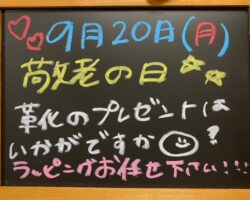 9月20日(月)
敬老の日
革化のプレゼントは
いかがですか?
ラッピングお任せ下さい!!!